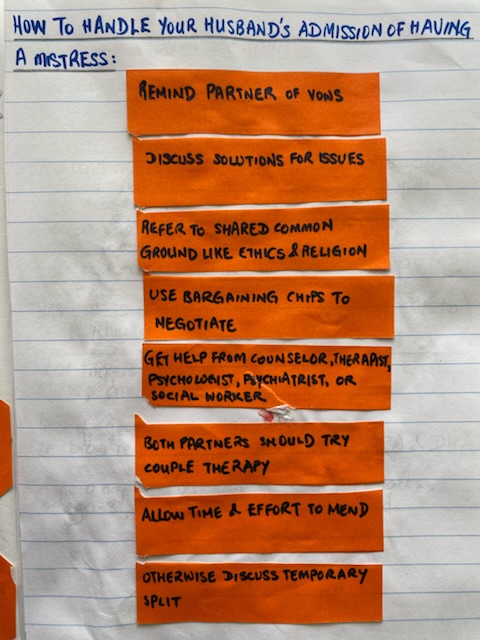 HOW TO HANDLE YOUR HUSBAND'S ADMISSION OF HAVING
A MISTRESS:
REMIND PARTNER OF VOWS
DISCUSS SOLUTIONS FOR ISSUES
REFER TO SHARED COMMON
GROUND LIKE ETHICS & RELIGION
USE BARGAINING CHIPS TO
NEGOTIATE
GET HELP FROM COUNSELOR, THERAPIST,
PSYCHOLOGIST, PSYCHIATRIST, OR
SOCIAL WORKER
BOTH PARTNERS SHOULD TRY
COUPLE THERAPY
ALLOW TIME & EFFORT TO MEND
OTHERWISE DISCUSS TEMPORARY
SPLIT